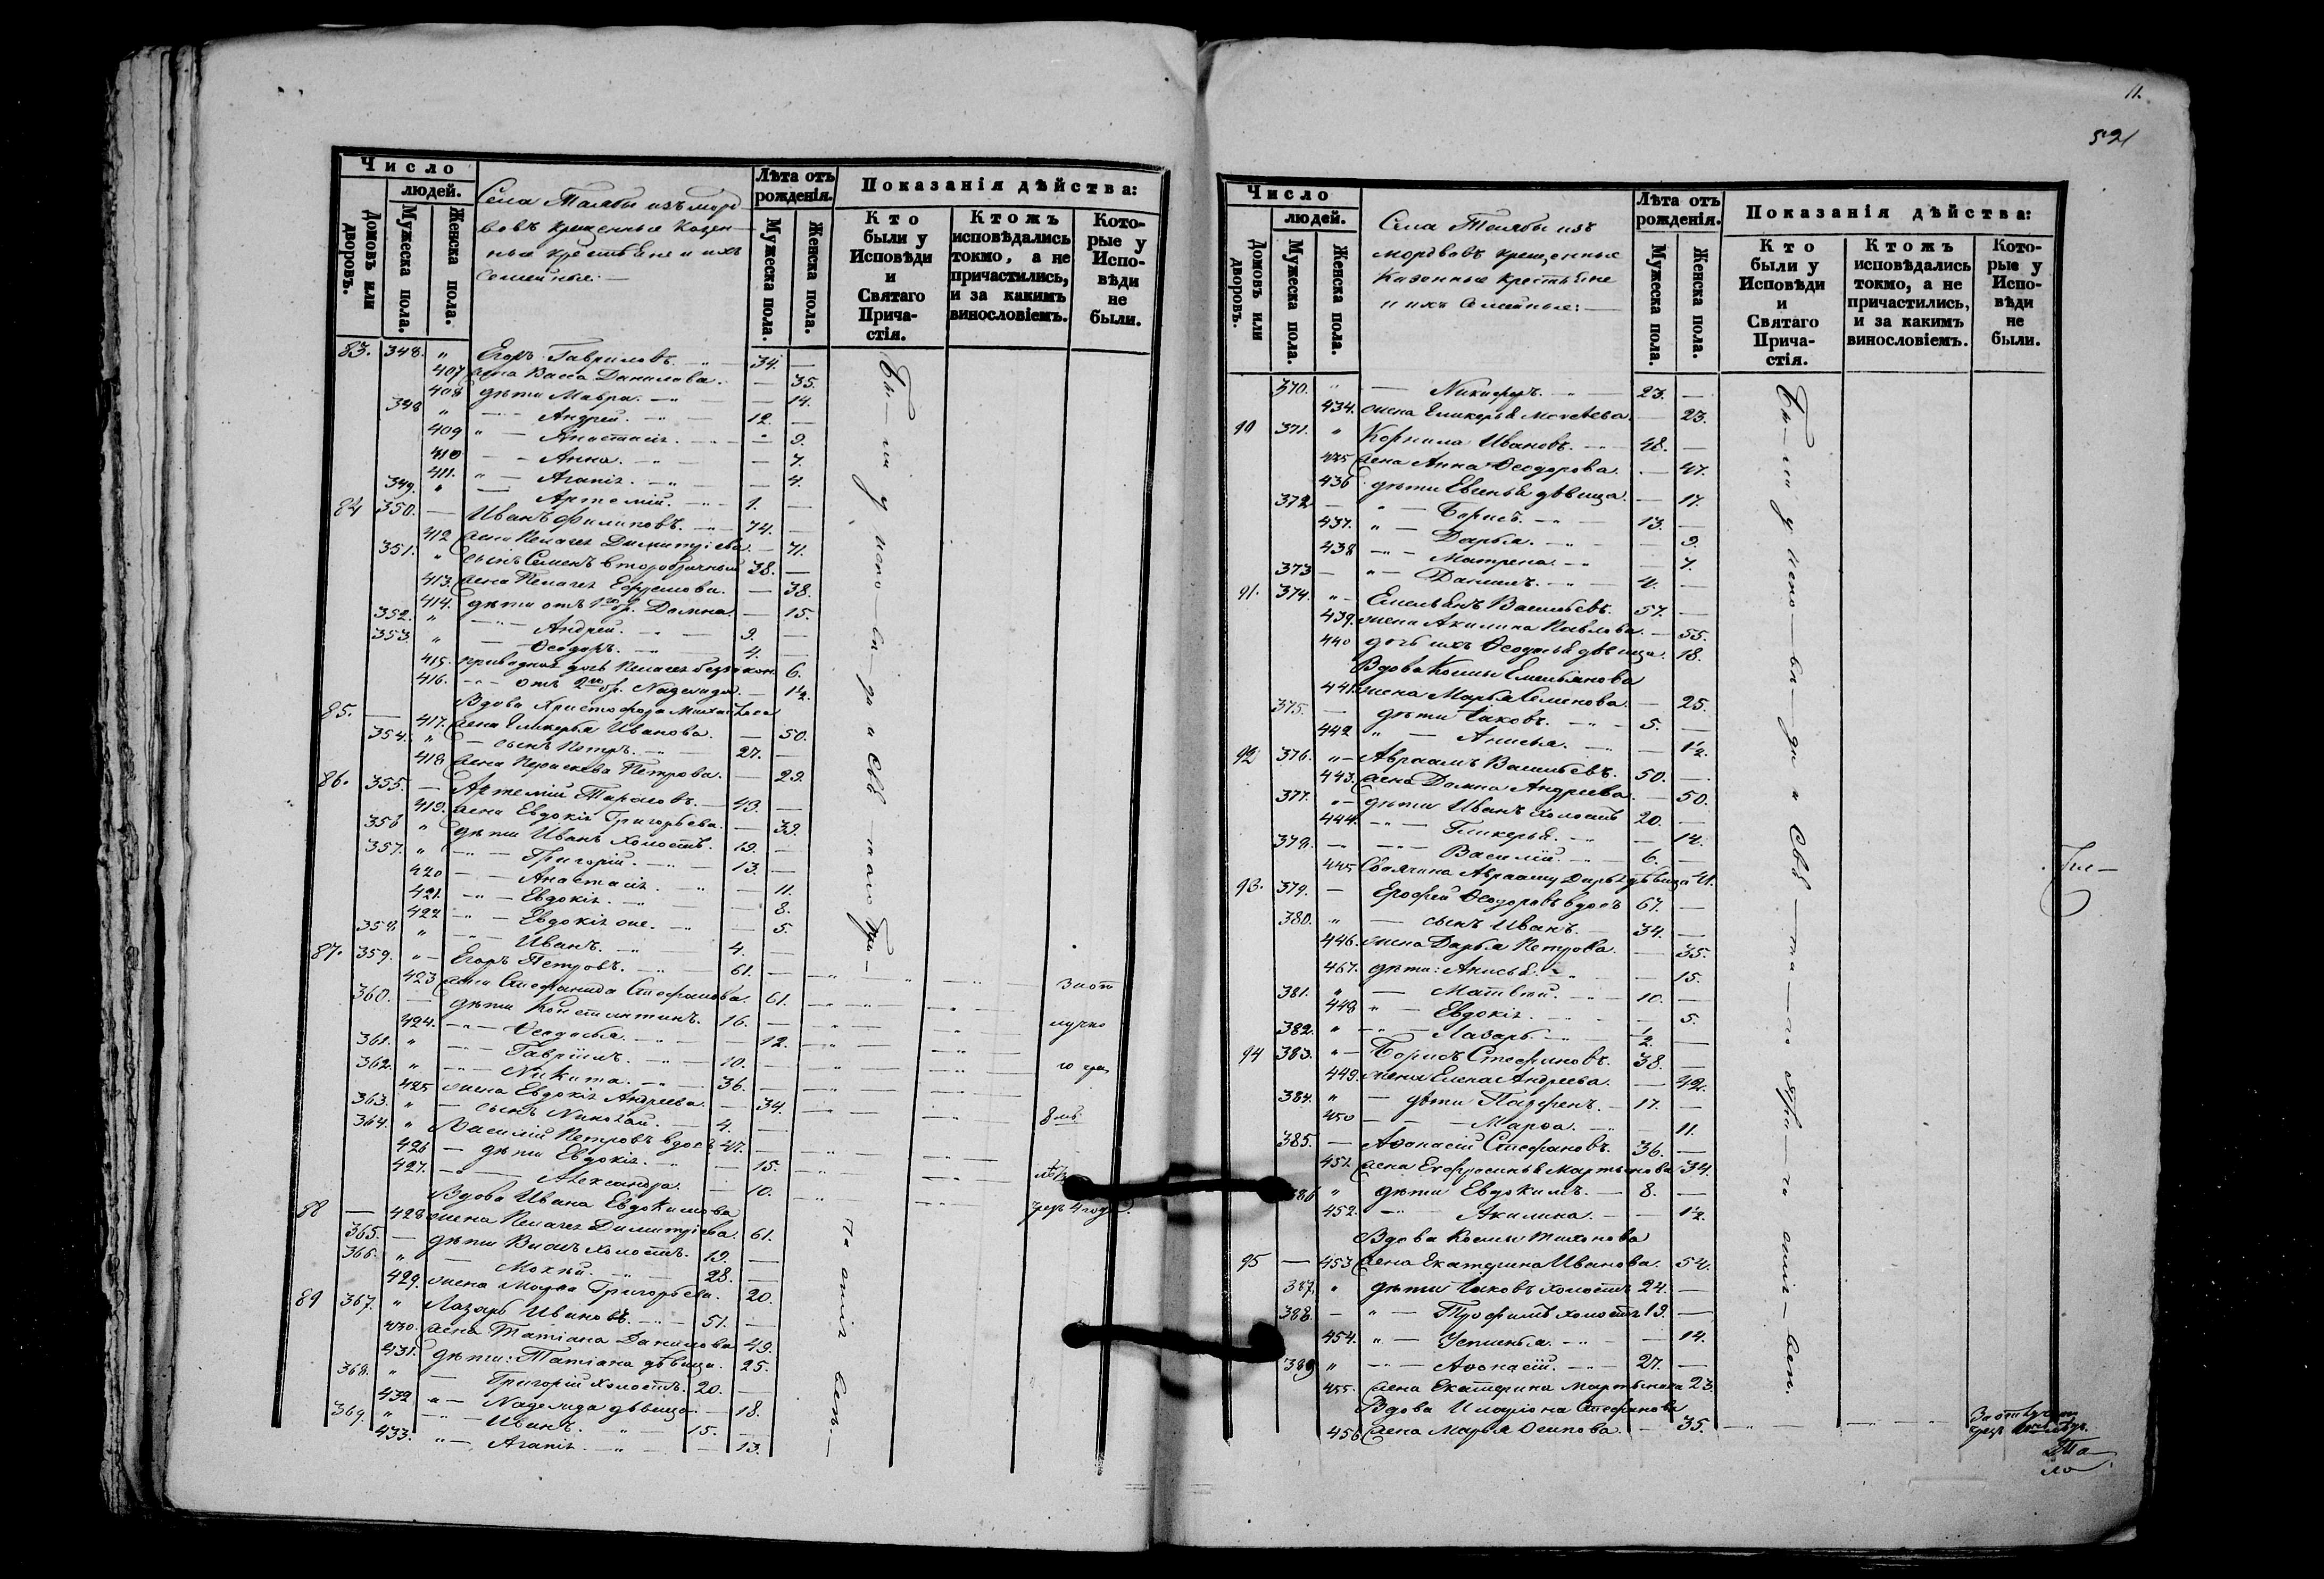 Число
людей.
Домовъ или дворовъ.
Мужеска пола.
Женска пола.
Села Талабы изъ морд-
вовъ крещенные Казен-
ные крестьяне и ихъ
Семейные:—
Лѣта отъ рожденія.
Мужеска пола.
Женска пола.
Показанія дѣйства:
Кто были у Исповѣди и Святаго Прича-стія.
Ктожъ исповѣдались токмо, а не причастились, и за какимъ винословіемъ.
Кото-рые у Испо-вѣди не были.
83. 348. " Егоръ Гавриловъ. 34. —
407 жена Васса Данилова. — 35.
408 дѣти Мавра. — 14.
348 " — Андрей. 12. —
409 " — Анастасія. — 9.
410 — Анна. — 7.
411. " — Агапія. — 4.
349. " — Артемій. 1. —
84 350. — Иванъ Филиповъ. 74. —
412 жена Пелагея Димитріева. — 71.
351. " сынъ Семенъ второбрачный 38. —
413. жена Пелагея Ефремова. — 38.
414. дѣти отъ 1го бр. Домна. — 15.
352. " — Андрей. 9. —
353. " — Ѳеодоръ. 4. —
415. приводная дочь Пелагея беззакон. 6.
416. — отъ 2го бр. Надежда. — 1/2.
Вдова Христофора Михайлова
85. — 417. жена Гликерья Иванова. — 50.
354. " — сынъ Петръ. 27. —
418. жена Параскева Петрова. — 29.
86. 355. — Артемій Тарасовъ. 43. —
419. жена Евдокія Григорьева. — 39.
356 " дѣти Иванъ холостъ. 19. —
357. " — Григорій. 13. —
420 — Анастасія. — 11.
421. — Евдокія. — 8.
422 — Евдокія — 5.
358. " — Иванъ. 4. —
87. 359. " — Егоръ Петровъ. 61. —
423 жена Стефанида Стефанова. 61.
360. — дѣти Константинъ. 16. —
424. — Ѳеодосья. — 12.
361. " — Гавріилъ. 10. —
362. " — Никита. 36. —
425 жена Евдокія Андреева. — 34.
363. " — сынъ Николай. 4. —
364. " Василій Петровъ вдовъ 47. —
426 — дѣти Евдокія. — 15.
427. — Александра. — 10.
Вдова Ивана Евдокимова
88 — 428 жена Пелагея Димитріева. 61.
365. — дѣти холостъ. 19. —
366. " — Мокѣй. 28. —
429. жена Марѳа Григорьева. 20.
89 367. " Лазарь Ивановъ. 51. —
430. жена Татіана Данилова 49.
431. дѣти: Татіана дѣвица. 25.
368. " — Григорій холостъ. 20. —
432 " — Надежда дѣвица. — 18.
369. " — Иванъ. 15. —
433. " — Агапія. — 13.
Бы—ли у испо—вѣ—ди и Свя—таго При—
ча
стія
вси.—
За от
лучко
ю чрез
8 мѣ
Чрезъ 4 года.
11.
521
Число
людей.
Домовъ или дворовъ.
Мужеска пола.
Женска пола.
Села Талабы изъ
мордвовъ крещенные
Казенные крестьяне
и ихъ Семейные:—
Лѣта отъ рожденія.
Мужеска пола.
Женска пола.
Показанія дѣйства:
Кто были у Исповѣди и Святаго Прича-стія.
Ктожъ исповѣдались токмо, а не причастились, и за какимъ винословіемъ.
Кото-рые у Испо-вѣди не были.
370. " — Никифоръ. 23. —
434. жена Гликерья Моисеева. — 23.
90 371. " Корнила Ивановъ. 48. —
435 жена Анна Ѳеодорова. — 47.
436 дѣти Евгенья дѣвица. — 17.
372 — " — Борисъ. 13. —
437. " — Дарья. — 9.
438 — Матрена. — 7.
373 — " — Даниилъ. 4. —
91. 374. " — Емельянъ Васильевъ. 57. —
439. жена Акилина Павлова. — 55.
440 дочь ихъ Ѳеодосья дѣвица. 18.
Вдова Космы Емельянова
441. жена Марья Семенова. — 25.
375. — дѣти Іаковъ. 5. —
442 " — Анисья. — 1/2.
92 376. " — Авраамъ Васильевъ. 50. —
443. жена Домна Андреева. — 50.
377. " — дѣти Иванъ холостъ 20. —
444. — Гликерья. — 14.
378. — Василій. 6. —
445 Своячина Аврааму Дарья дѣвица 41.
93. 379. — Ерофей Ѳеодоровъ вдовъ 67. —
380. " — сынъ Иванъ. 34. —
446. жена Дарья Петрова. — 35.
467. дѣти: Анисья. — 15.
381. " — Матвѣй. 10. —
448 " — Евдокія. — 5.
382. " — Лазарь. 1/2. —
94 383. " — Борисъ Стефановъ. 38. —
449. жена Елена Андреева. — 42.
384. " — дѣти Парфенъ. 17. —
450 — Марѳа. — 11.
385. — Аѳонасій Стефановъ. 36. —
451. жена Ефросинья Мартынова 34.
386 " дѣти Евдокимъ. 8. —
452. — Акилина. — 1/2.
Вдова Космы Тихонова
95 — 453 жена Екатерина Иванова. 54.
387. " дѣти Іаковъ холостъ 24. —
388. — " — Трофимъ холостъ 19. —
454. " — Устинья. — 14.
389 " — Аѳонасій. 27. —
455. жена Екатерина Мартынова 23.
Вдова Иларіона Стефанова
456 жена Марья Осипова. — 35.
Бы—ли у испо—вѣ—ди и Свя—та—го При—ча стія—вси.